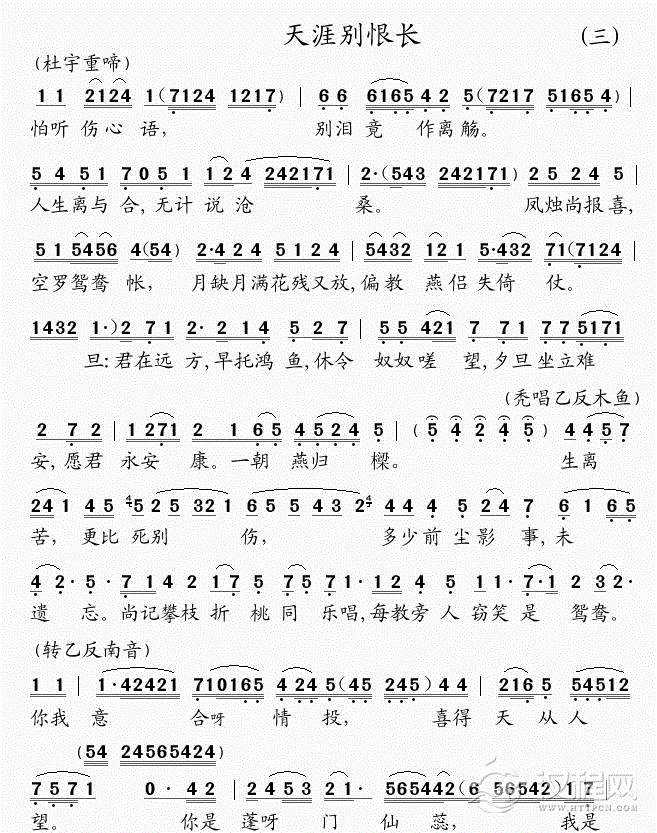 天涯别恨长 (三)
(杜宇重啼)
1 1 2124 1(7124 1217) | 6 6 6165 4 2 5(7217 5165 4)
怕听伤心语, 别泪竟作离觞。
5 4 5 1 7 0 5 1 1 2 4 242171 | 2·(543 242171) | 2 5 2 4 5
人生离与合, 无计说沧桑。 凤烛尚报喜,
5 1 5456 4(54) 2·424 5124 5 | 5432 1 2 1 5·432 71(7124
空罗鸳鸯帐, 月缺月满花残又放, 偏教燕侣失倚仗。
1432 1·)2 7 1 2· 2 1 4 5 2 7 | 5 5 421 7 7 1 7 7 5171
旦:君在远方, 早托鸿鱼, 休令奴奴嗟望, 夕旦坐立难
(秃唱乙反木鱼)
2 7 2 | 1271 2 1 6 5 4 5 2 4 5 | (5 4 2 4 5) | 4 4 5 7
安, 愿君永安康。一朝燕归樑。 生离
24 1 4 5 4 5 2 5 3 2 1 6 5 5 4 3 2 4 4 4 5 2 4 7 6 1 6 5
苦, 更比死别伤, 多少前尘影事, 未
4 2· 5· 7 1 4 2 1 7 5 7 5 7 1 1 1 2 1·7·1 2 3 2·
遗忘。尚记攀枝折桃同乐唱, 每教旁人窃笑是鸳鸯。
(转乙反南音)
1 1 | 1·42421 710165 4 24 5(45 245) 4 4 | 2165 54512
你我意合呀情投, 喜得天从人
(54 24565424)
7 5 7 1 0· 4 2 | 2 4 5 3 2 1· 565442(6 56542) 1 7
望。 你是蓬呀门仙蕊, 我是
汉程网
HTTPCN.COM